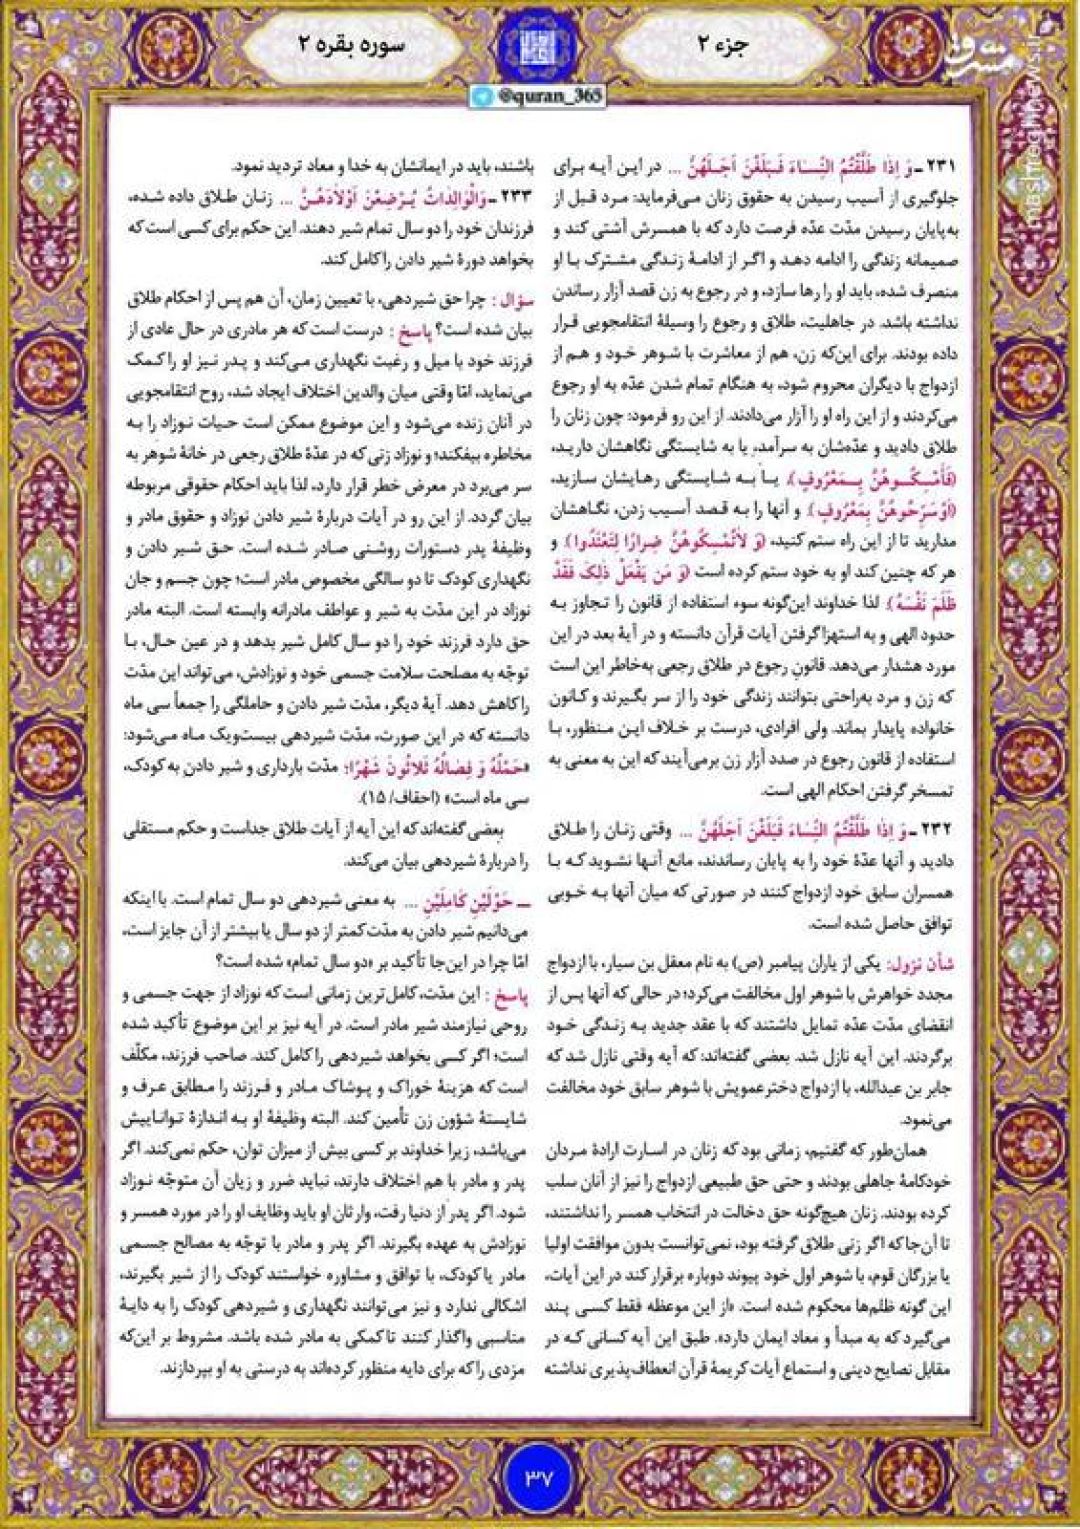 جزء ۲
سوره بقره ۲
@quran_365
مشرق
mashreghnews.ir
۲۳۱ـ وَ اِذَا طَلَّقْتُمُ النِّسَاءَ فَبَلَغْنَ اَجَلَهُنَّ ... در این آیه برای
جلوگیری از آسیب رسیدن به حقوق زنان می‌فرماید: مرد قبل از
به‌پایان رسیدن مدّت عدّه فرصت دارد که با همسرش آشتی کند و
صمیمانه زندگی را ادامه دهد و اگر از ادامهٔ زندگی مشترک با او
منصرف شده، باید او را رها سازد، و در رجوع به زن قصد آزار رساندن
نداشته باشد. در جاهلیت، طلاق و رجوع را وسیلهٔ انتقامجویی قرار
داده بودند. برای این‌که زن، هم از معاشرت با شوهر خود و هم از
ازدواج با دیگران محروم شود، به هنگام تمام شدن عدّه به او رجوع
می‌کردند و از این راه او را آزار می‌دادند. از این رو فرمود: چون زنان را
طلاق دادید و عدّه‌شان به سرآمد، یا به شایستگی نگاهشان دارید،
(فَأَمْسِکُوهُنَّ بِمَعْرُوفٍ)، یا به شایستگی رهایشان سازید،
(اَوْ سَرِّحُوهُنَّ بِمَعْرُوفٍ) و آنها را به قصد آسیب زدن، نگاهشان
مدارید تا از این راه ستم کنید، (وَ لاتُمْسِکُوهُنَّ ضِرارًا لِتَعْتَدُوا) و
هر که چنین کند او به خود ستم کرده است (وَ مَن یَفْعَلْ ذلِکَ فَقَدْ
ظَلَمَ نَفْسَهُ). لذا خداوند این‌گونه سوء استفاده از قانون را تجاوز به
حدود الهی و به استهزا گرفتن آیات قرآن دانسته و در آیهٔ بعد در این
مورد هشدار می‌دهد. قانون رجوع در طلاق رجعی به‌خاطر این است
که زن و مرد به‌راحتی بتوانند زندگی خود را از سر بگیرند و کانون
خانواده پایدار بماند. ولی افرادی، درست بر خلاف این منظور، با
استفاده از قانون رجوع در صدد آزار زن برمی‌آیند که این به معنی به
تمسخر گرفتن احکام الهی است.
۲۳۲ـ وَ اِذَا طَلَّقْتُمُ النِّسَاءَ فَبَلَغْنَ اَجَلَهُنَّ ... وقتی زنان را طلاق
دادید و آنها عدّهٔ خود را به پایان رساندند، مانع آنها نشوید که با
همسران سابق خود ازدواج کنند در صورتی که میان آنها به خوبی
توافق حاصل شده است.
شأن نزول: یکی از یاران پیامبر (ص) به نام معقل بن سیار، با ازدواج
مجدد خواهرش با شوهر اول مخالفت می‌کرد؛ در حالی که آنها پس از
انقضای مدّت عدّه تمایل داشتند که با عقد جدید به زندگی خود
برگردند. این آیه نازل شد. بعضی گفته‌اند: که آیه وقتی نازل شد که
جابر بن عبدالله، با ازدواج دختر عمویش با شوهر سابق خود مخالفت
می‌نمود.
همان‌طور که گفتیم، زمانی بود که زنان در اسارت ارادهٔ مردان
خودکامهٔ جاهلی بودند و حتی حق طبیعی ازدواج را نیز از آنان سلب
کرده بودند. زنان هیچ‌گونه حق دخالت در انتخاب همسر را نداشتند،
تا آن‌جا که اگر زنی طلاق گرفته بود، نمی‌توانست بدون موافقت اولیا
یا بزرگان قوم، با شوهر اول خود پیوند دوباره برقرار کند در این آیات،
این گونه ظلم‌ها محکوم شده است. «از این موعظه فقط کسی پند
می‌گیرد که به مبدأ و معاد ایمان دارد». طبق این آیه کسانی که در
مقابل نصایح دینی و استماع آیات کریمهٔ قرآن انعطاف‌پذیری نداشته
باشند، باید در ایمانشان به خدا و معاد تردید نمود.
۲۳۳ـ وَالْوَالِدَاتُ یُرْضِعْنَ اَوْلاَدَهُنَّ ... زنان طلاق داده شده،
فرزندان خود را دو سال تمام شیر دهند. این حکم برای کسی است که
بخواهد دورهٔ شیر دادن را کامل کند.
سؤال : چرا حق شیردهی، با تعیین زمان، آن هم پس از احکام طلاق
بیان شده است؟ پاسخ : درست است که هر مادری در حال عادی از
فرزند خود با میل و رغبت نگهداری می‌کند و پدر نیز او را کمک
می‌نماید، امّا وقتی میان والدین اختلاف ایجاد شد، روح انتقامجویی
در آنان زنده می‌شود و این موضوع ممکن است حیات نوزاد را به
مخاطره بیفکند؛ و نوزاد زنی که در عدّهٔ طلاق رجعی در خانهٔ شوهر به
سر می‌برد در معرض خطر قرار دارد، لذا باید احکام حقوقی مربوطه
بیان گردد. از این رو در آیات دربارهٔ شیر دادن نوزاد و حقوق مادر و
وظیفهٔ پدر دستورات روشنی صادر شده است. حق شیر دادن و
نگهداری کودک تا دو سالگی مخصوص مادر است؛ چون جسم و جان
نوزاد در این مدّت به شیر و عواطف مادرانه وابسته است. البته مادر
حق دارد فرزند خود را دو سال کامل شیر بدهد و در عین حال، با
توجّه به مصلحت سلامت جسمی خود و نوزادش، می‌تواند این مدّت
را کاهش دهد. آیهٔ دیگر، مدّت شیر دادن و حاملگی را جمعاً سی ماه
دانسته که در این صورت، مدّت شیردهی بیست‌ویک ماه می‌شود:
«حَمْلُهُ وَ فِصَالُهُ ثَلاثُونَ شَهْرًا؛ مدّت بارداری و شیر دادن به کودک،
سی ماه است» (احقاف/ ۱۵).
بعضی گفته‌اند که این آیه از آیات طلاق جداست و حکم مستقلی
را دربارهٔ شیردهی بیان می‌کند.
ـ حَوْلَیْنِ کَامِلَیْنِ ... به معنی شیردهی دو سال تمام است. با اینکه
می‌دانیم شیر دادن به مدّت کمتر از دو سال یا بیشتر از آن جایز است،
امّا چرا در این‌جا تأکید بر «دو سال تمام» شده است؟
پاسخ : این مدّت، کامل‌ترین زمانی است که نوزاد از جهت جسمی و
روحی نیازمند شیر مادر است. در آیه نیز بر این موضوع تأکید شده
است؛ اگر کسی بخواهد شیردهی را کامل کند. صاحب فرزند، مکلّف
است که هزینهٔ خوراک و پوشاک مادر و فرزند را مطابق عرف و
شایستهٔ شؤون زن تأمین کند. البته وظیفهٔ او به اندازهٔ تواناییش
می‌باشد، زیرا خداوند بر کسی بیش از میزان توان، حکم نمی‌کند. اگر
پدر و مادر با هم اختلاف دارند، نباید ضرر و زیان آن متوجّه نوزاد
شود. اگر پدر از دنیا رفت، وارثان او باید وظایف او را در مورد همسر و
نوزادش به عهده بگیرند. اگر پدر و مادر با توجّه به مصالح جسمی
مادر یا کودک، با توافق و مشاوره خواستند کودک را از شیر بگیرند،
اشکالی ندارد و نیز می‌توانند نگهداری و شیردهی کودک را به دایهٔ
مناسبی واگذار کنند تا کمکی به مادر شده باشد. مشروط بر این‌که
مزدی را که برای دایه منظور کرده‌اند به درستی به او بپردازند.
۳۷